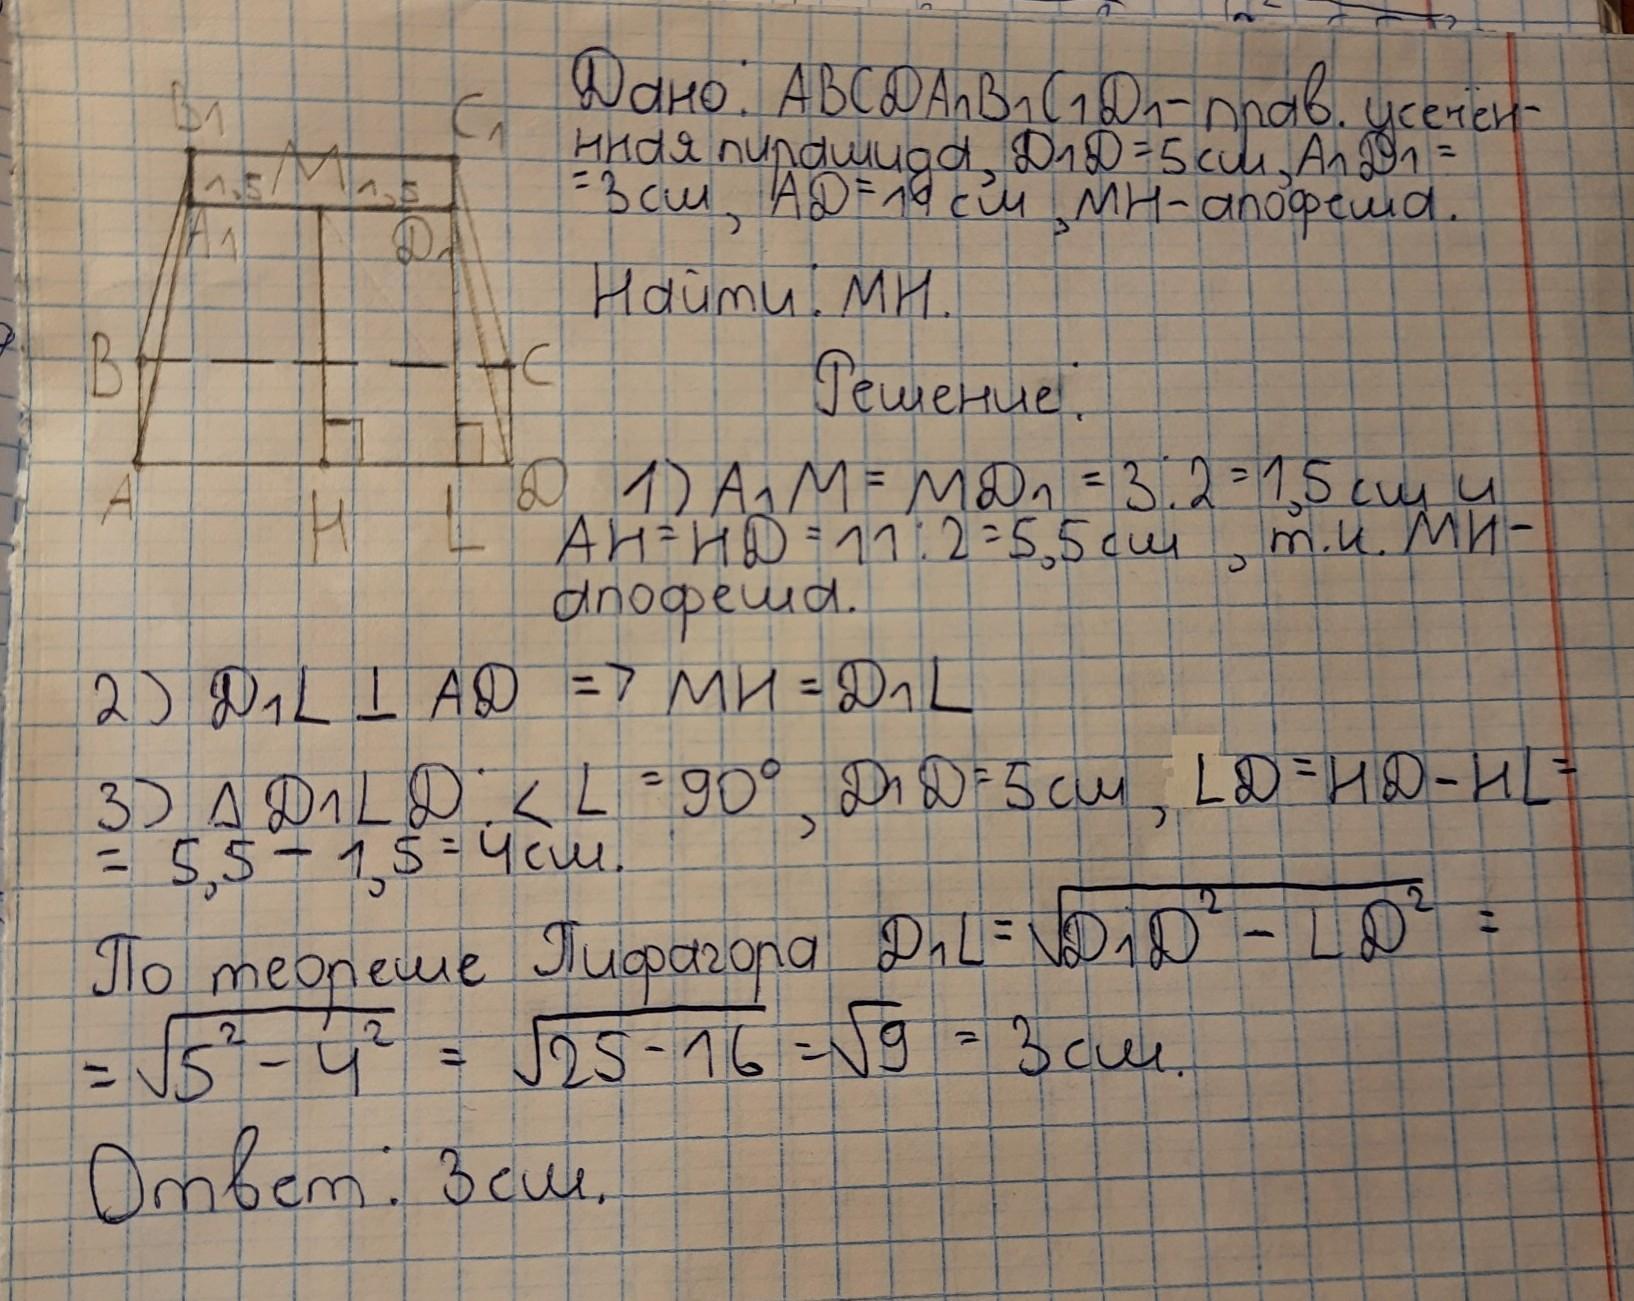 B1
C1
1,5 M 1,5
A1
D1
B
C
A
H
L
D
Дано: ABCDA1B1C1D1 - прав. усечён-
нная пирамида, D1D = 5 см, A1D1 =
= 3 см, AD = 11 см, MH - апофема.
Найти: MH.
Решение:
1) A1M = MD1 = 3:2 = 1,5 см и
AH = HD = 11:2 = 5,5 см, т.к. MH -
апофема.
2) D1L ⊥ AD => MH = D1L
3) Δ D1LD: < L = 90°, D1D = 5 см, LD = HD - HL =
= 5,5 - 1,5 = 4 см.
По теореме Пифагора D1L = √D1D² - LD² =
= √5² - 4² = √25 - 16 = √9 = 3 см.
Ответ: 3 см.